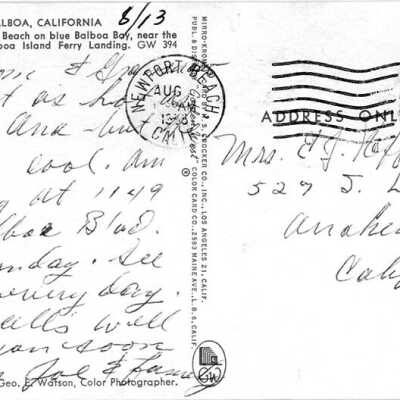 8/13
ALBOA, CALIFORNIA
Beach on blue Balboa Bay, near the
boa Island Ferry Landing. GW 394
me & Gra
t is ho
Ana but
cool. Am
g at 1149
lboa Blvd.
nday. See
every day.
ells well
soon
Joe & family
Geo. E. Watson, Color Photographer.
NEWPORT BEACH
AUG
AM
CAL
MIRRO-KROME CARD BY H. S. CROCKER CO., INC., LOS ANGELES 21, CALIF.
COLOR CARD CO., 2583 MAINE AVE., L.B. CALIF.
GW
ADDRESS ONL
Mrs. E. J.
527 S. L
Anahe
Cali